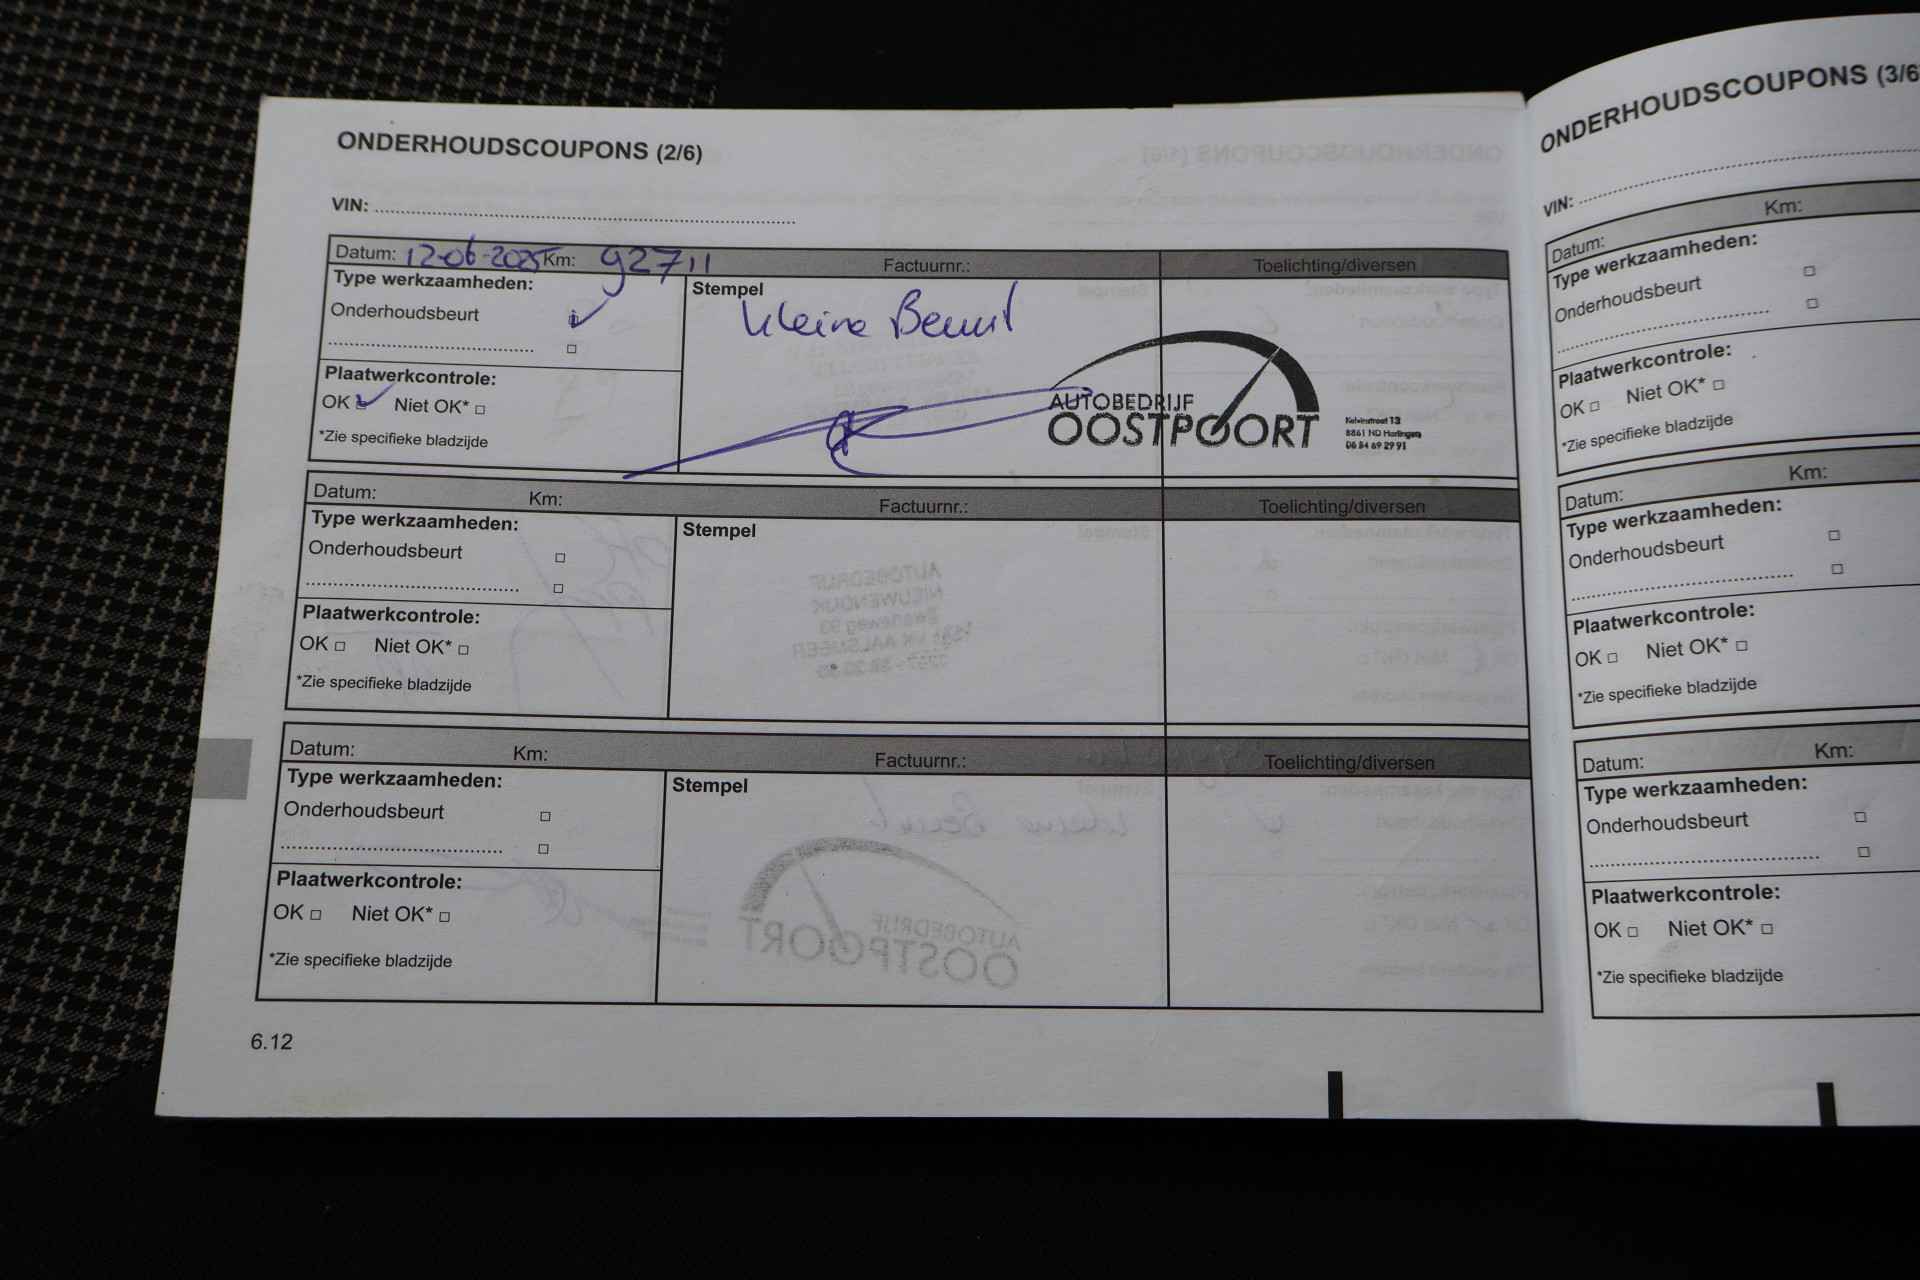 ONDERHOUDSCOUPONS (2/6)
VIN:
Datum: 12-06-2025 Km: 92711 Factuurnr.: Toelichting/diversen
Type werkzaamheden:
Stempel
Kleine Beurt
Onderhoudsbeurt
Plaatwerkcontrole:
OK Niet OK*
*Zie specifieke bladzijde
AUTOBEDRIJF
OOSTPOORT
Kelvinstraat 13
8861 ND Harlingen
06 54 69 29 91
Datum: Km: Factuurnr.: Toelichting/diversen
Type werkzaamheden:
Stempel
Onderhoudsbeurt
Plaatwerkcontrole:
OK Niet OK*
*Zie specifieke bladzijde
Datum: Km: Factuurnr.: Toelichting/diversen
Type werkzaamheden:
Stempel
Onderhoudsbeurt
Plaatwerkcontrole:
OK Niet OK*
*Zie specifieke bladzijde
6.12
ONDERHOUDSCOUPONS (3/6
VIN:
Datum: Km:
Type werkzaamheden:
Onderhoudsbeurt
Plaatwerkcontrole:
OK Niet OK*
*Zie specifieke bladzijde
Datum: Km:
Type werkzaamheden:
Onderhoudsbeurt
Plaatwerkcontrole:
OK Niet OK*
*Zie specifieke bladzijde
Datum: Km:
Type werkzaamheden:
Onderhoudsbeurt
Plaatwerkcontrole:
OK Niet OK*
*Zie specifieke bladzijde